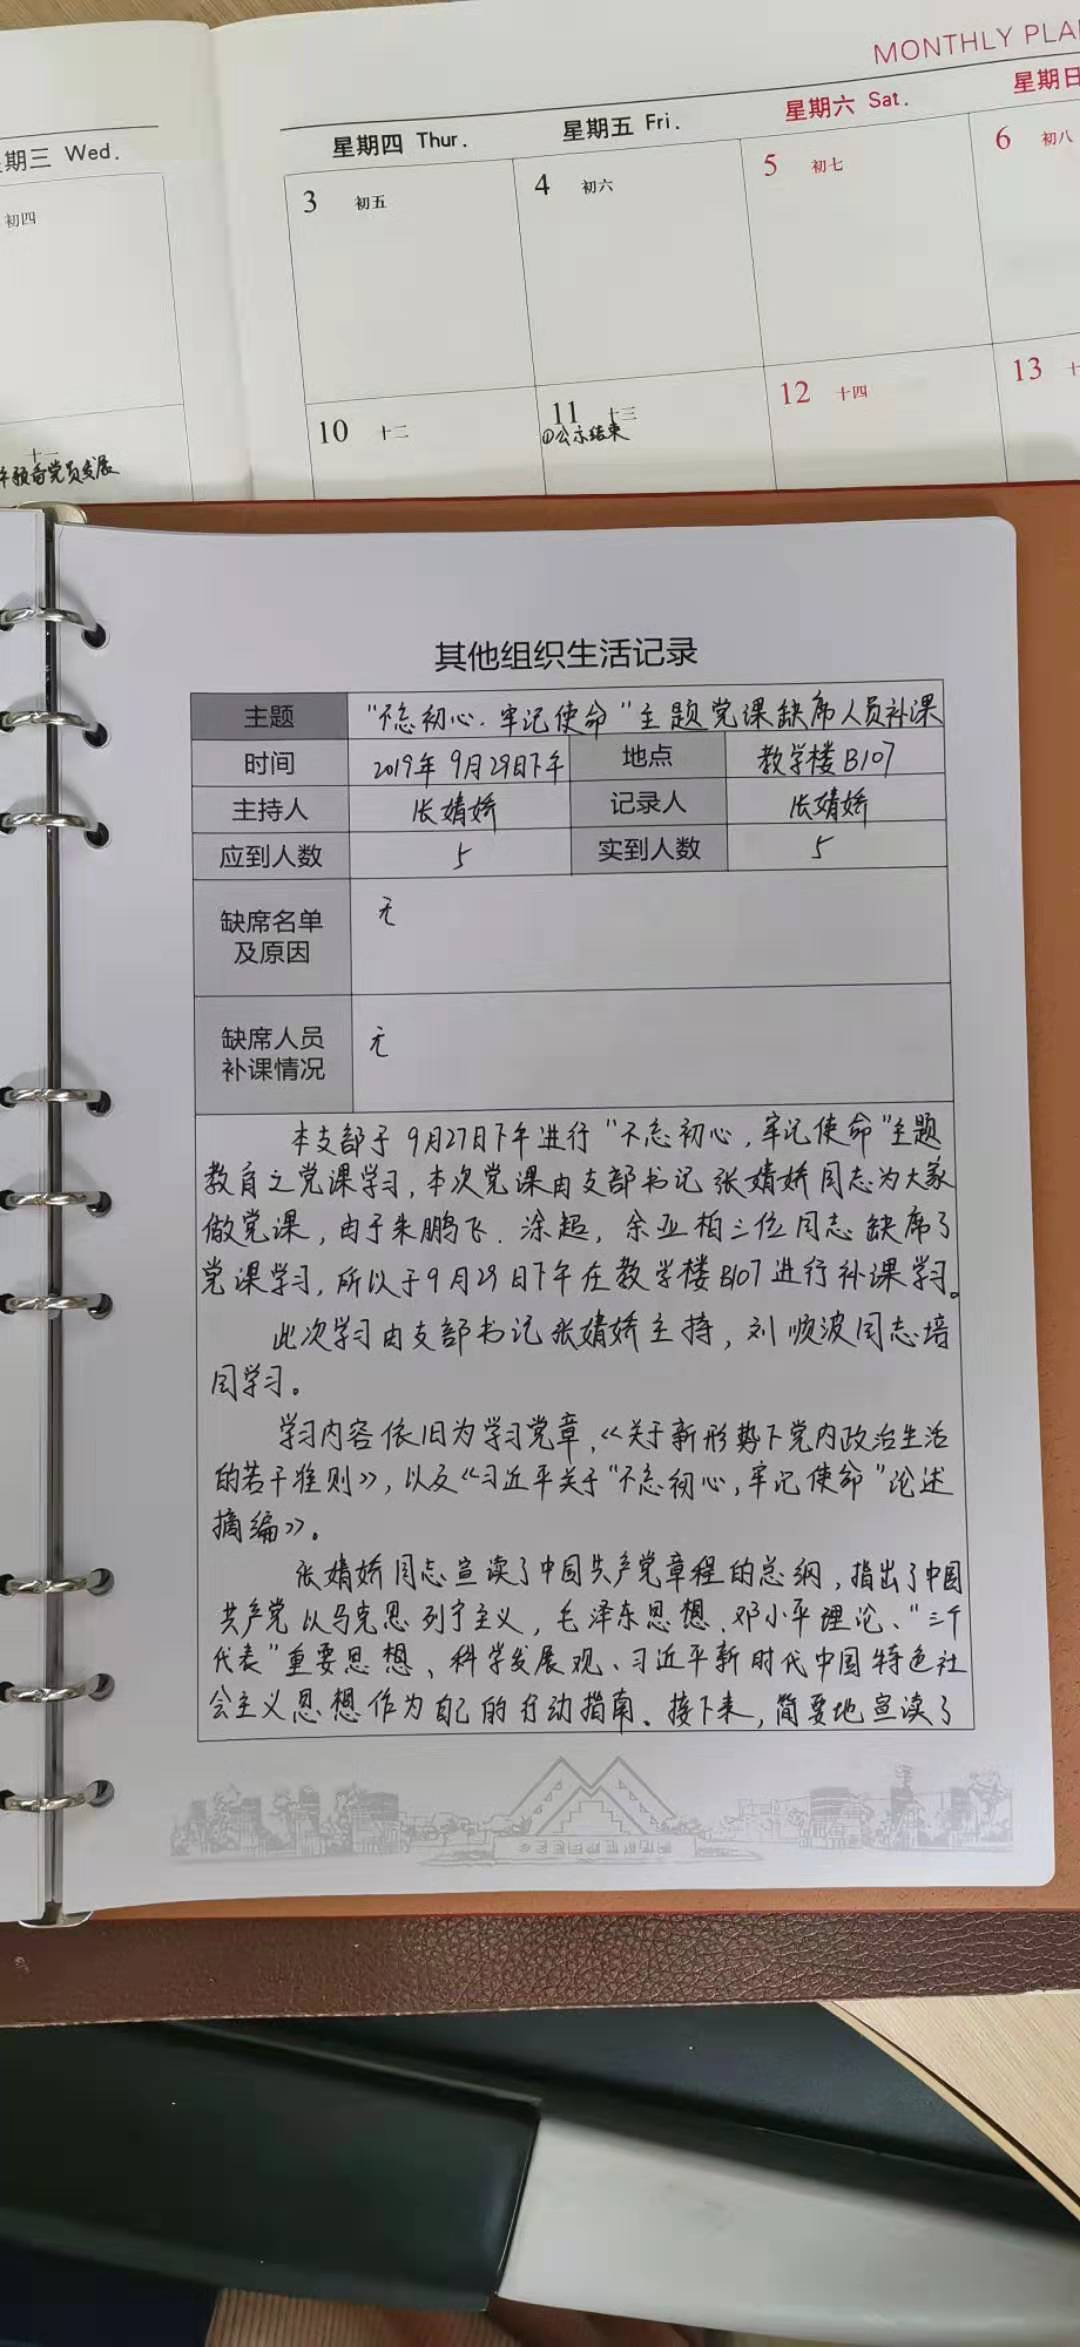 MONTHLY PLA
期三 Wed.
星期四 Thur.
星期五 Fri.
星期六 Sat.
星期日
初四
3 初五
4 初六
5 初七
6 初八
十一
10 十二
11 十三
12 十四
13 十
预备党员发展
①公示结束
其他组织生活记录
主题 "不忘初心.牢记使命"主题党课缺席人员补课
时间 2019年9月29日下午 地点 教学楼B107
主持人 张婧娇 记录人 张婧娇
应到人数 5 实到人数 5
缺席名单 无
及原因
缺席人员 无
补课情况
本支部于9月27日下午进行"不忘初心,牢记使命"主题
教育之党课学习,本次党课由支部书记张婧娇同志为大家
做党课,由于朱鹏飞.涂超,余亚柏三位同志缺席了
党课学习,所以于9月29日下午在教学楼B107进行补课学习。
此次学习由支部书记张婧娇主持,刘顺波同志培
同学习。
学习内容依旧为学习党章,《关于新形势下党内政治生活
的若干准则》,以及《习近平关于"不忘初心,牢记使命"论述
摘编》。
张婧娇同志宣读了中国共产党章程的总纲,指出了中国
共产党以马克思列宁主义,毛泽东思想.邓小平理论、"三个
代表"重要思想、科学发展观、习近平新时代中国特色社
会主义思想作为自己的行动指南、接下来,简要地宣读了